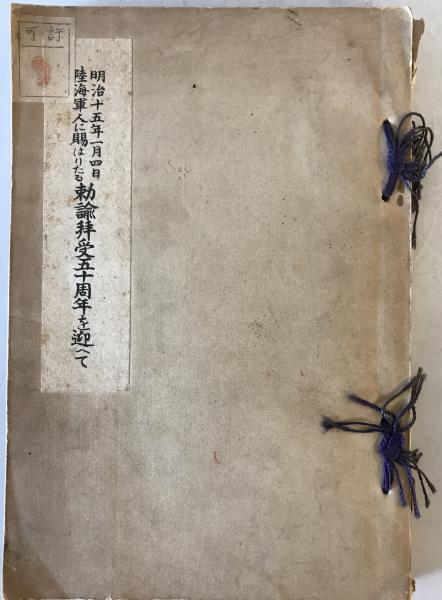 許可
明治十五年一月四日
陸海軍人に賜はりたる
勅諭拝受五十周年を迎へて